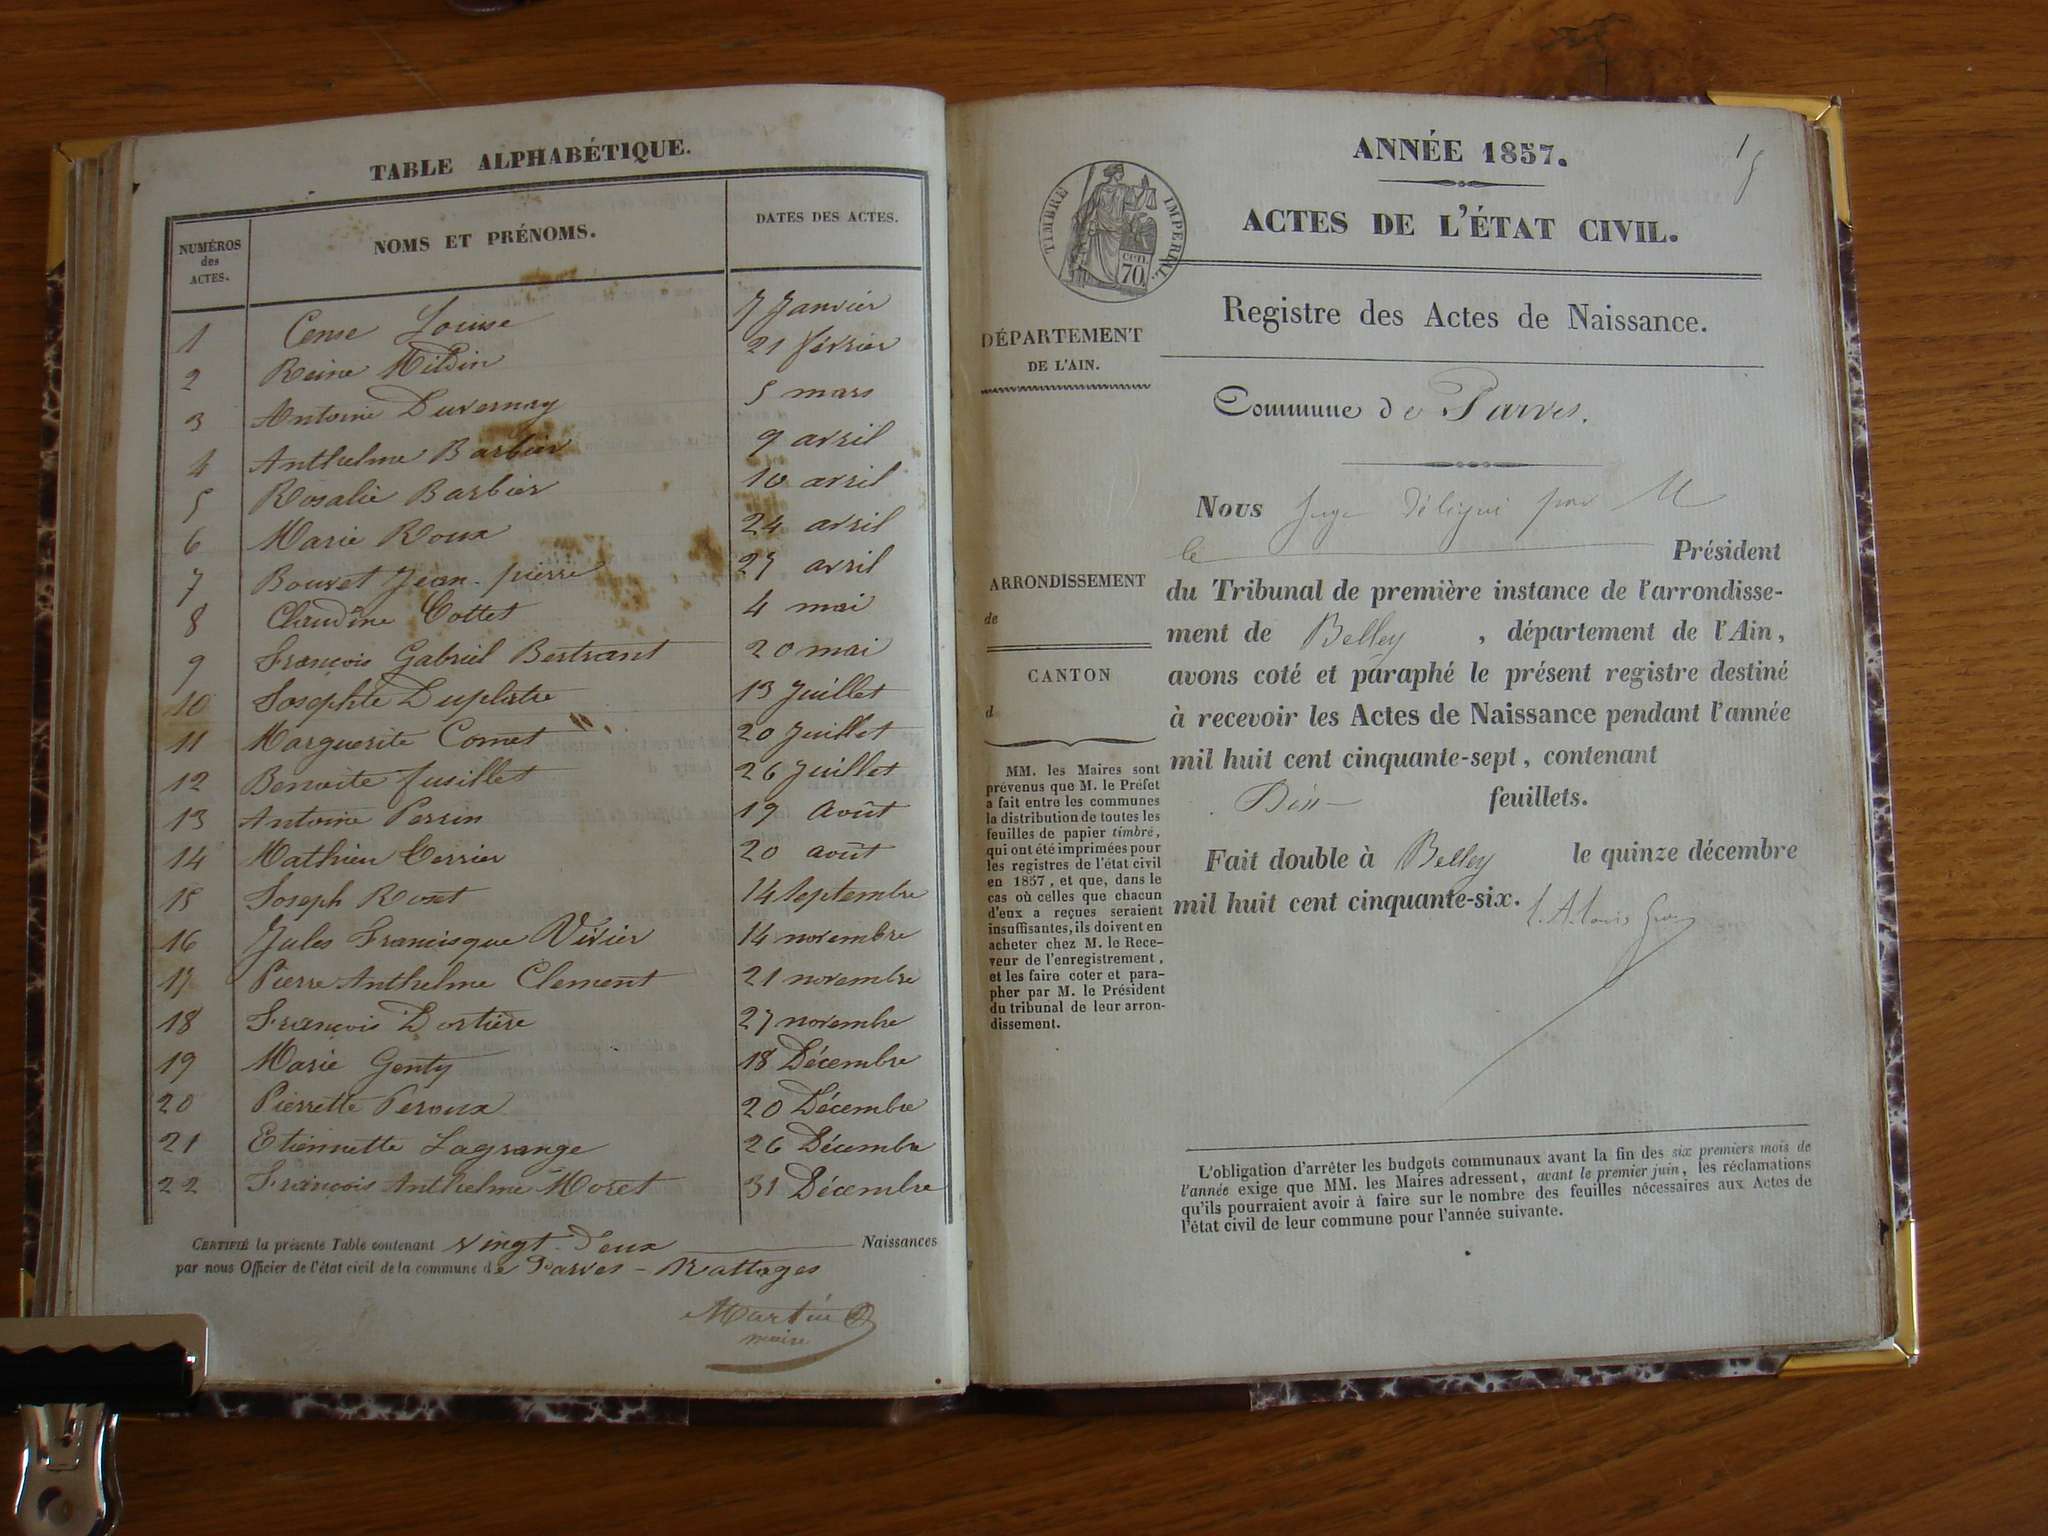 TABLE ALPHABÉTIQUE.
NUMÉROS des ACTES. NOMS ET PRÉNOMS. DATES DES ACTES.
1 Cense Louise 7 Janvier
2 Reine Mildin 21 février
3 Antoine Duvernay 5 mars
4 Anthelme Barbier 9 avril
5 Rosalie Barbier 10 avril
6 Marie Roux 24 avril
7 Bouvet Jean-pierre 27 avril
8 Claudine Cottet 4 mai
9 François Gabriel Bertrant 20 mai
10 Josephte Duplatre 13 Juillet
11 Marguerite Comet 20 Juillet
12 Benoite fusillet 26 Juillet
13 Antoine Perrin 19 Août
14 Mathieu Terrier 20 août
15 Joseph Roset 14 Septembre
16 Jules Francisque Vivier 14 novembre
17 Pierre Anthelme Clement 21 novembre
18 François Dortière 27 novembre
19 Marie Genty 18 Décembre
20 Pierrette Peroux 20 Décembre
21 Etiennette Lagrange 26 Décembre
22 François Anthelme Moret 31 Décembre
CERTIFIÉ la présente Table contenant vingt-Deux Naissances
par nous Officier de l'état civil de la commune de Parves - Nattages
Martin
maire
15
ANNÉE 1857.
ACTES DE L'ÉTAT CIVIL.
TIMBRE IMPERIAL.
CEN. 70.
Registre des Actes de Naissance.
DÉPARTEMENT
DE L'AIN.
Commune de Parves.
Nous Juge Délégué par M
le Président
du Tribunal de première instance de l'arrondisse-
ment de Belley, département de l'Ain,
avons coté et paraphé le présent registre destiné
à recevoir les Actes de Naissance pendant l'année
mil huit cent cinquante-sept, contenant
Dix feuillets.
Fait double à Belley le quinze décembre
mil huit cent cinquante-six.
ARRONDISSEMENT
de
CANTON
d
MM. les Maires sont
prévenus que M. le Préfet
a fait entre les communes
la distribution de toutes les
feuilles de papier timbré,
qui ont été imprimées pour
les registres de l'état civil
en 1857, et que, dans le
cas où celles que chacun
d'eux a reçues seraient
insuffisantes, ils doivent en
acheter chez M. le Rece-
veur de l'enregistrement,
et les faire coter et para-
pher par M. le Président
du tribunal de leur arron-
dissement.
L'obligation d'arrêter les budgets communaux avant la fin des six premiers mois de
l'année exige que MM. les Maires adressent, avant le premier juin, les réclamations
qu'ils pourraient avoir à faire sur le nombre des feuilles nécessaires aux Actes de
l'état civil de leur commune pour l'année suivante.